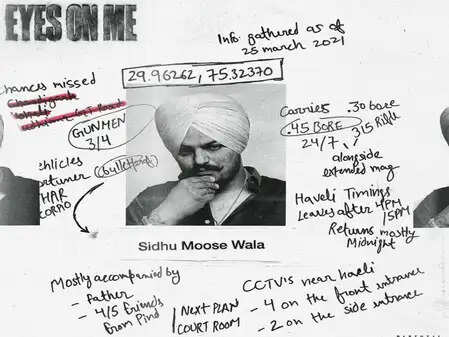 EYES ON ME
Info: gathered as of
25 march 2021
Chances missed
Chandigarh
GT Road
29.96262, 75.32370
GUNMEN
3/4
ehicles
ortuner (bulletproof)
HAR
Carries .30 bore
.45 BORE
24/7, 315 Rifle
alongside
extended mag
Haveli Timings
Leaves after 4PM
/5PM
Returns mostly
Midnight
Sidhu Moose Wala
Mostly accompanied by
- Father
- 4/5 friends
from Pind
NEXT PLAN
COURT ROOM
CCTV's near haveli
- 4 on the front entrance
- 2 on the side entrance